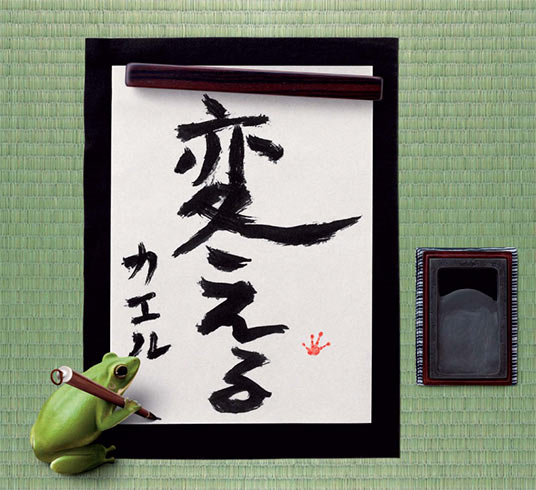 変える
カエル